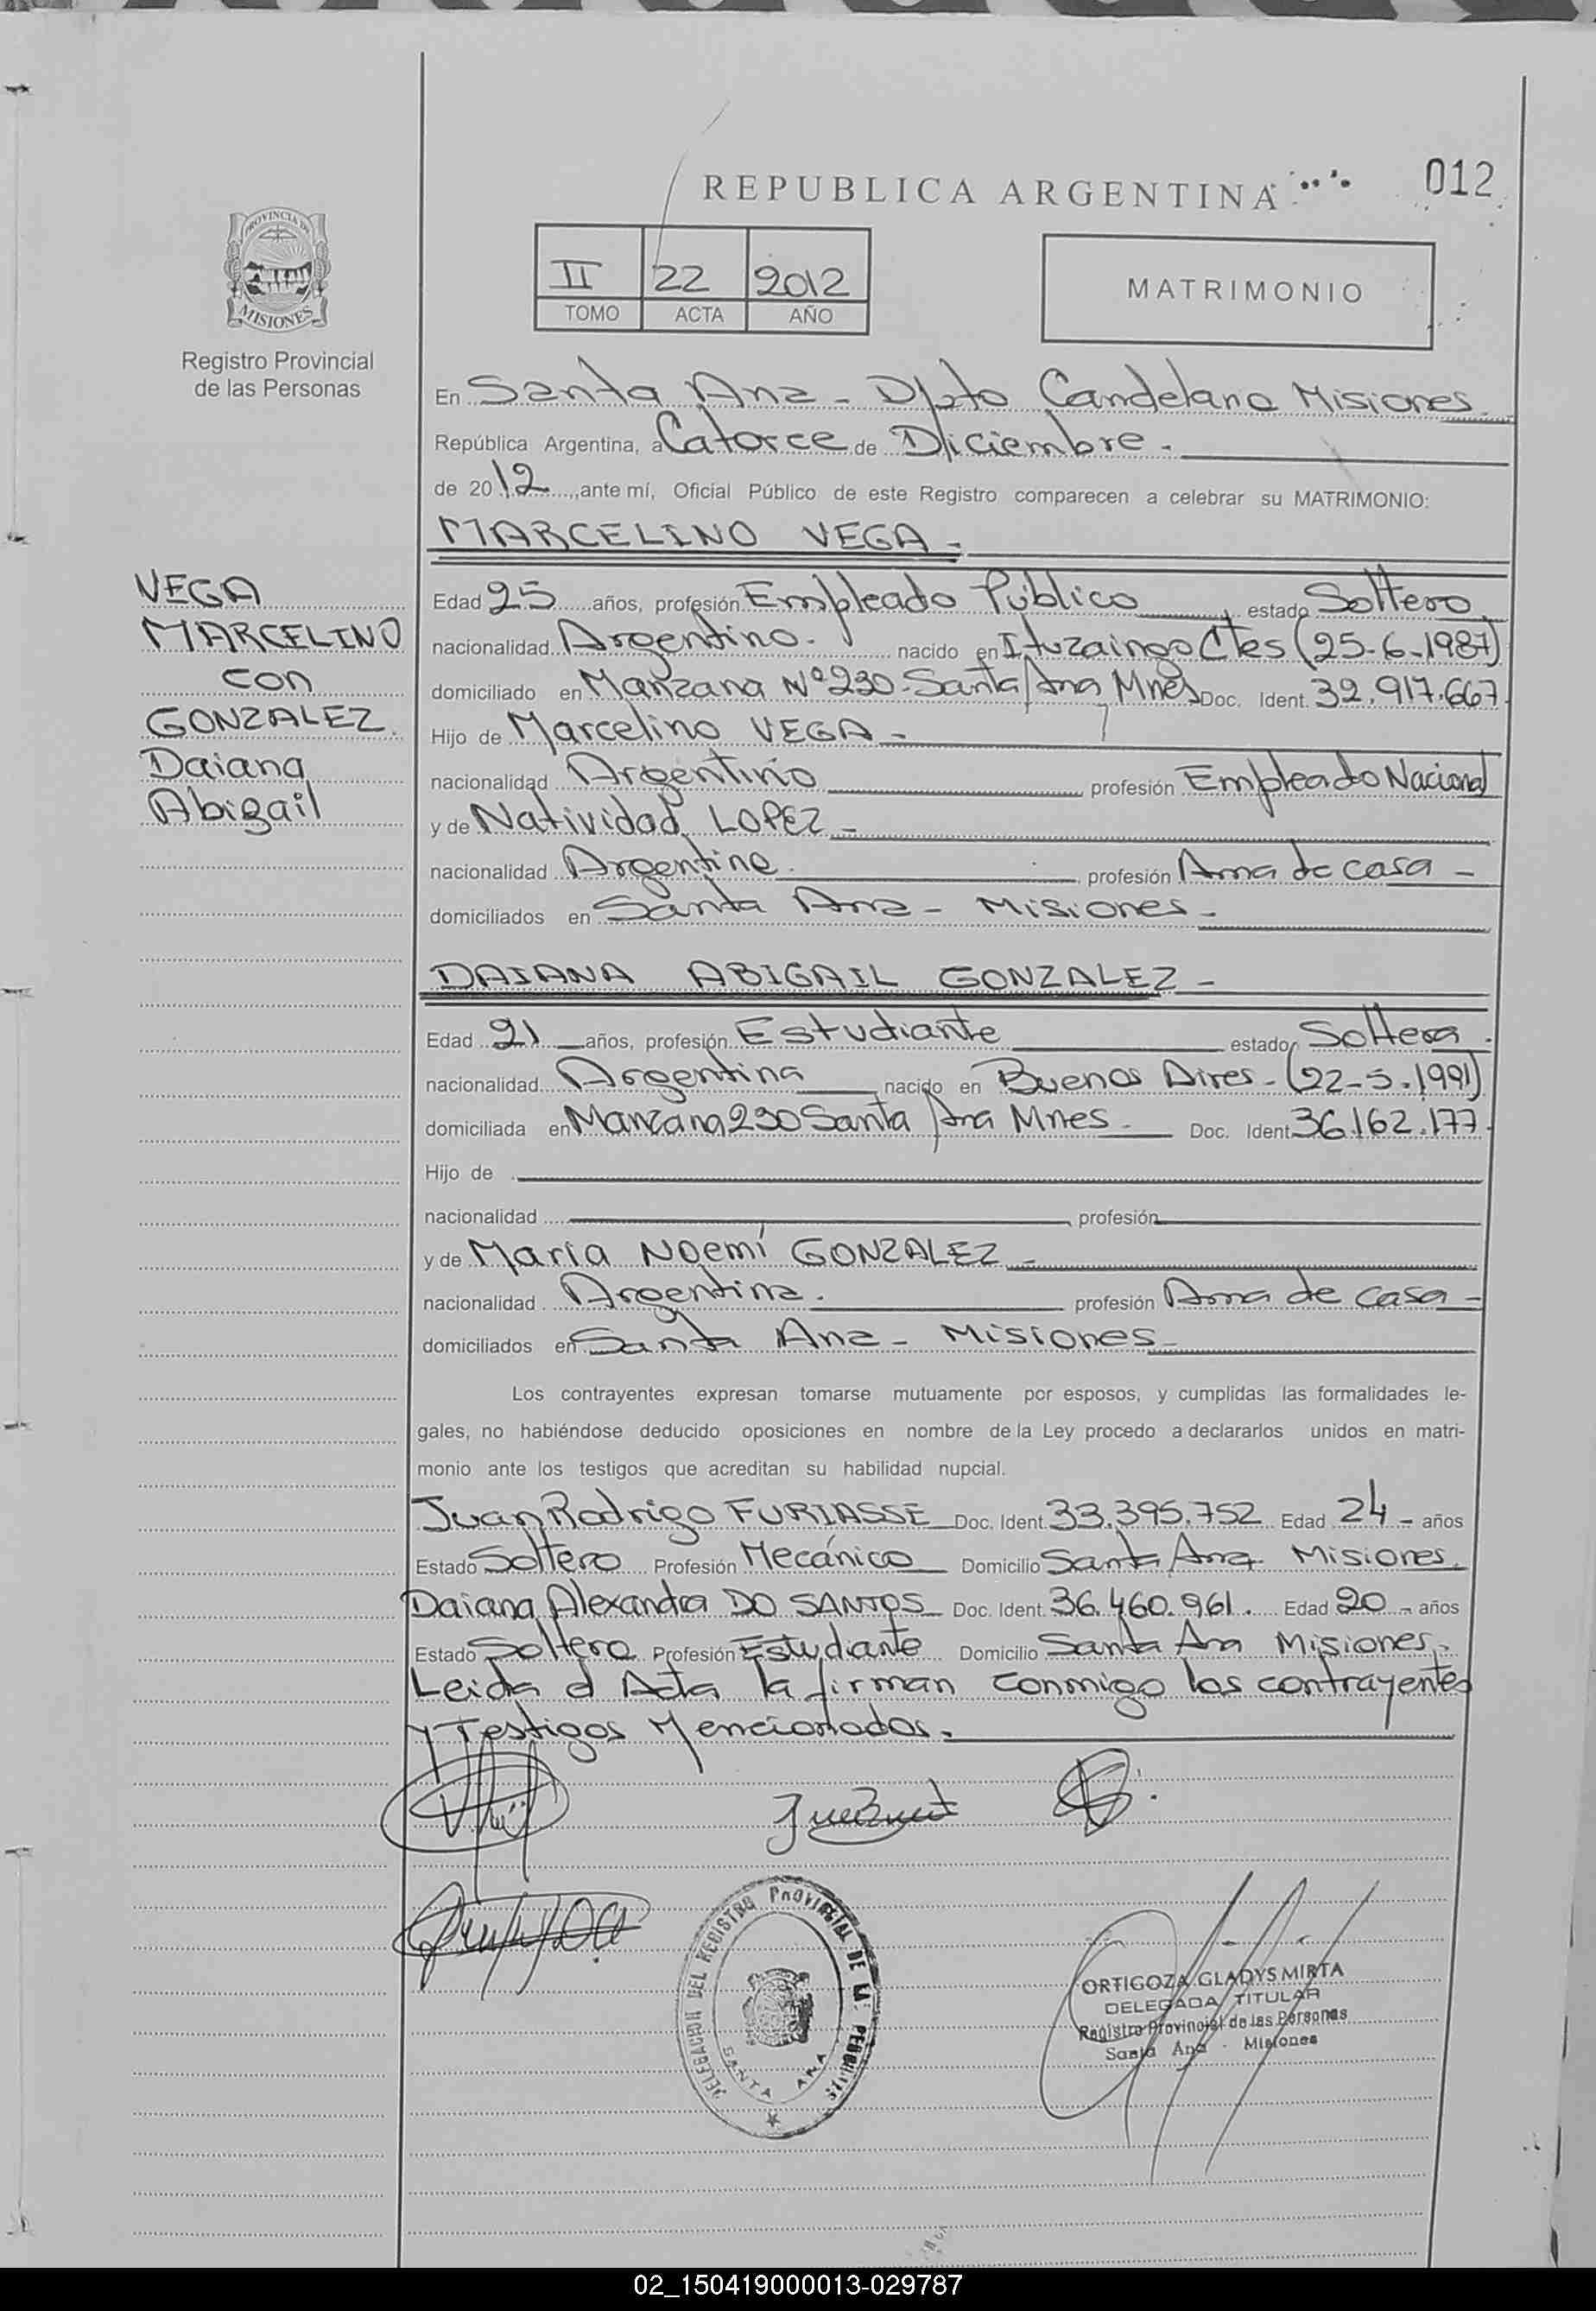 REPUBLICA ARGENTINA
012
PROVINCIA DE
MISIONES
Registro Provincial
de las Personas
II 22 2012
TOMO ACTA AÑO
MATRIMONIO
En Santa Ana - Dpto Candelaria Misiones
República Argentina, a Catorce de Diciembre.
de 2012, ante mí, Oficial Público de este Registro comparecen a celebrar su MATRIMONIO:
MARCELINO VEGA -
VEGA
MARCELINO
con
GONZALEZ
Daiana
Abigail
Edad 25 años, profesión Empleado Público estado Soltero
nacionalidad Argentino. nacido en Ituzaingo Ctes (25-6-1987)
domiciliado en Manzana Nº 230 - Santa Ana Mnes Doc. Ident. 32.917.667
Hijo de Marcelino VEGA -
nacionalidad Argentino profesión Empleado Nacional
y de Natividad LOPEZ -
nacionalidad Argentina. profesión Ama de casa -
domiciliados en Santa Ana - Misiones -
DAIANA ABIGAIL GONZALEZ -
Edad 21 años, profesión Estudiante estado Soltera.
nacionalidad Argentina nacido en Buenos Aires - (22-5-1991)
domiciliada en Manzana 230 Santa Ana Mnes - Doc. Ident 36.162.177.
Hijo de
nacionalidad profesión
y de Maria Noemí GONZALEZ -
nacionalidad Argentina. profesión Ama de casa -
domiciliados en Santa Ana - Misiones -
Los contrayentes expresan tomarse mutuamente por esposos, y cumplidas las formalidades le-
gales, no habiéndose deducido oposiciones en nombre de la Ley procedo a declararlos unidos en matri-
monio ante los testigos que acreditan su habilidad nupcial.
Juan Rodrigo FURIASSE Doc. Ident. 33.395.752 Edad 24 - años
Estado Soltero Profesión Mecánico Domicilio Santa Ana Misiones.
Daiana Alexandra DO SANTOS Doc. Ident. 36.460.961. Edad 20 - años
Estado Soltera Profesión Estudiante Domicilio Santa Ana Misiones.
Leida el Acta la firman conmigo los contrayentes
y Testigos Mencionados.
DELEGACION DEL REGISTRO PROVINCIAL DE LA
SANTA ANA
ORTIGOZA GLADYS MIRTA
DELEGADA TITULAR
Registro Provincial de las Personas
Santa Ana - Misiones
02_150419000013-029787